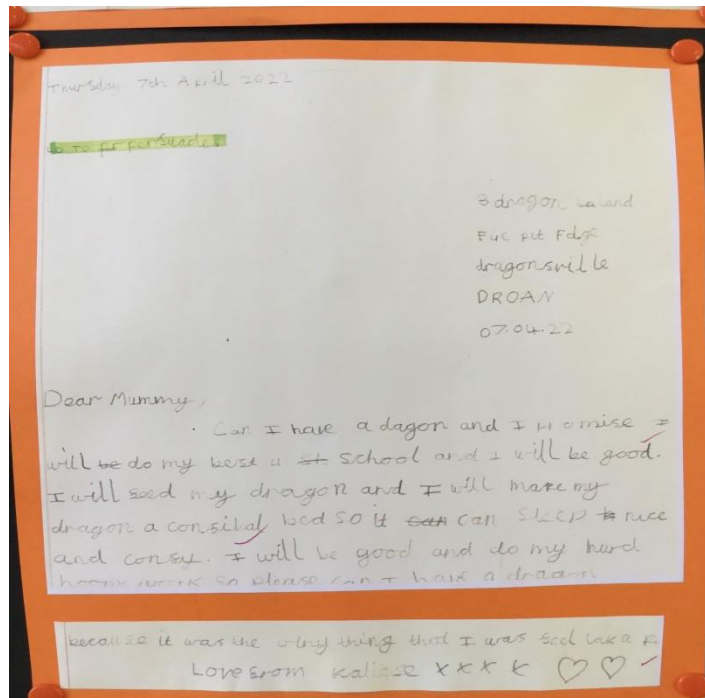 Thursday 7th April 2022
to persuade
3 dragon
dragonsville
DROAN
07.04.22
Dear Mummy,
Can I have a dagon and I promise I
will be do my best a st school and I will be good.
I will seed my dragon and I will make my
dragon a consital bed so it can can sleep nice
and consy. I will be good and do my hard
work so please can I have a dragon
because it was the thing that I was
Love srom xxxx ♡ ♡